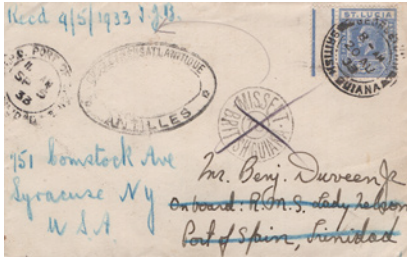 Recd 9/5/1933 J.J.B.
ST. LUCIA
PORT OF
SP
33
TRANSATLANTIQUE
ANTILLES
MISSENT
BRITISH
GUIANA
751 Comstock Ave
Syracuse Ny
U S A
Mr. Benj. Durveen Jr
Onboard: R.M.S. Lady Nelson
Port of Spain, Trinidad